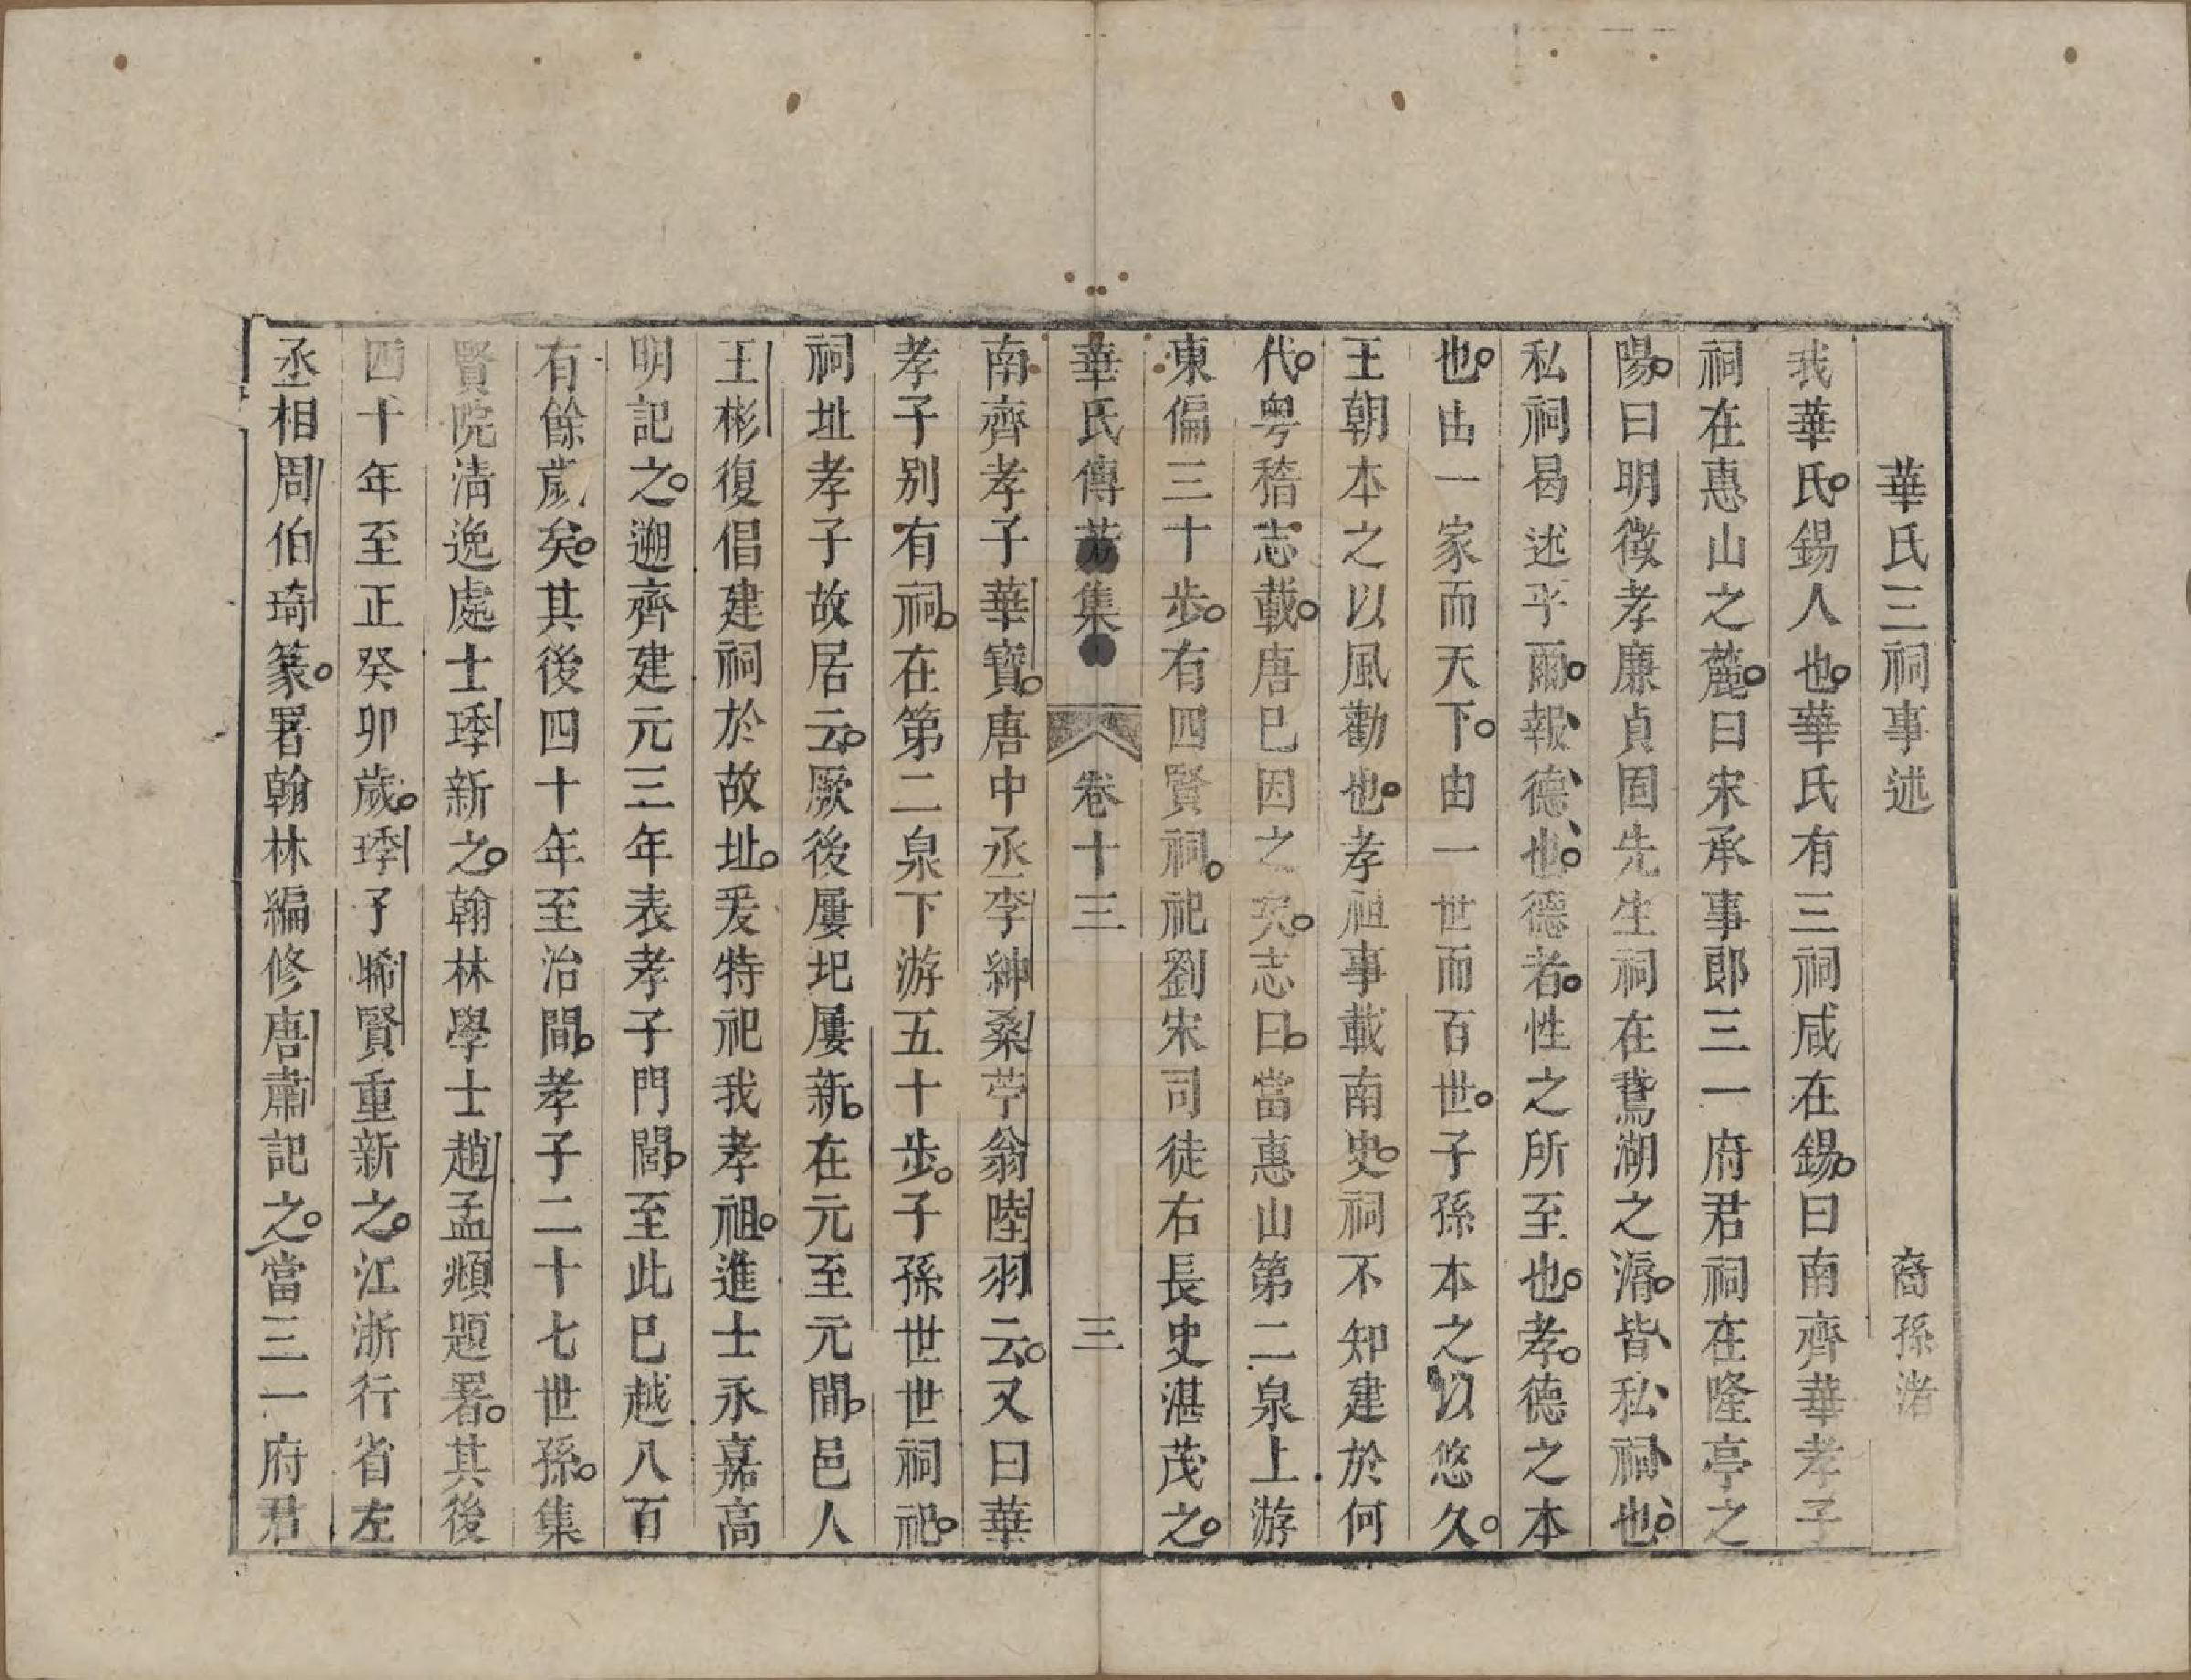 華氏三祠事述　裔孫渚
我華氏錫人也華氏有三祠咸在錫曰南齊華孝子
祠在惠山之麓曰宋承事郎三一府君祠在隆亭之
陽曰明徵孝廉貞固先生祠在鵞湖之滣皆私祠也
私祠曷述乎爾報德也德者性之所至也孝德之本
也由一家而天下由一世而百世子孫本之以悠久
王朝本之以風勸也孝祖事載南史祠不知建於何
代粵稽志載唐已因之矣志曰當惠山第二泉上游
東偏三十步有四賢祠祀劉宋司徒右長史湛茂之
華氏傳芳集　卷十三　三
南齊孝子華寶唐中丞李紳桑苧翁陸羽云又曰華
孝子别有祠在第二泉下游五十步子孫世世祠祀
祠址孝子故居云厥後屢圯屢新在元至元間邑人
王彬復倡建祠於故址爰特祀我孝祖進士永嘉高
明記之遡齊建元三年表孝子門閭至此巳越八百
有餘歲矣其後四十年至治間孝子二十七世孫集
賢院清逸處士㻎新之翰林學士趙孟頫題署其後
四十年至正癸卯歲㻎子晞賢重新之江浙行省左
丞相周伯琦篆署翰林編修唐肅記之當三一府君